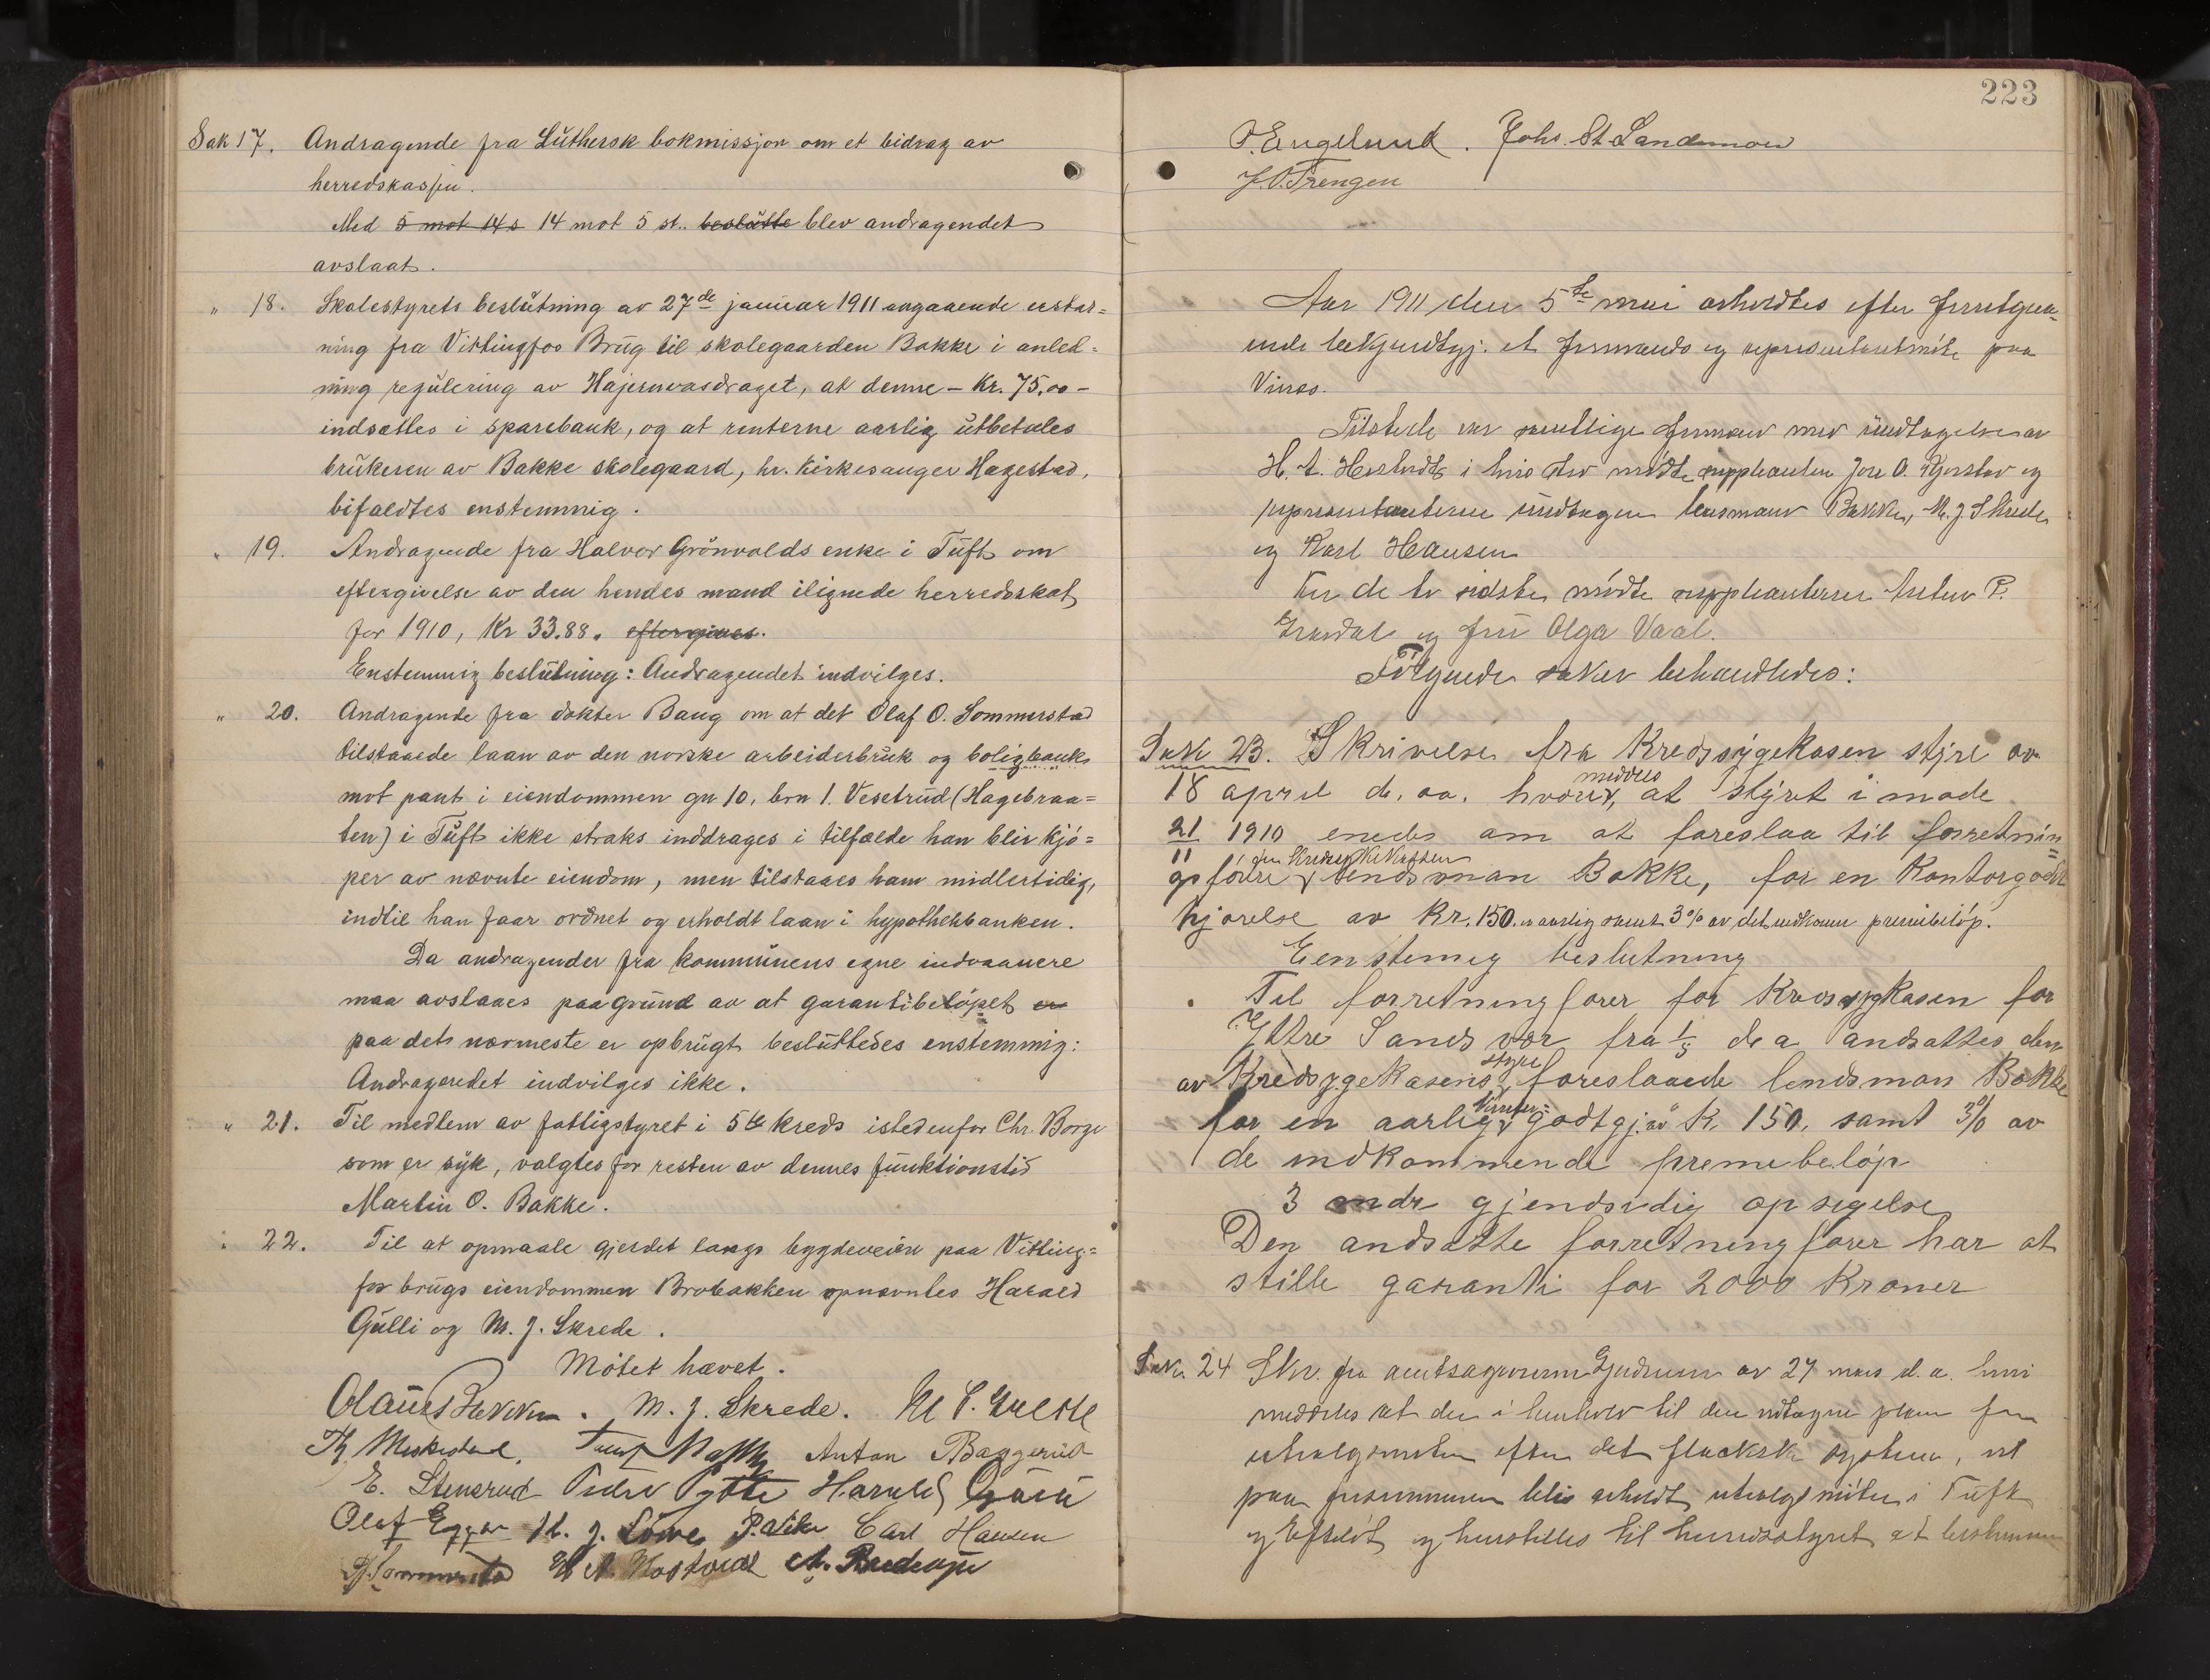 Sak 17. Andragende fra Luthersk bokmissjon om et bidrag av
herredskassen.
Med 5 mot 14 s 14 mot 5 st. beslutte blev andragendet
avslaat.
" 18. Skolestyrets beslutning av 27de januar 1911 angaaende erstat=
ning fra Vittingfos Brug til skolegaarden Bakke i anled=
ning regulering av Hajernvasdraget, at denne – Kr. 75,00 –
indsættes i sparebank, og at renterne aarlig utbetales
brukeren av Bakke skolegaard, hr. kirkesanger Hagestad,
bifaldtes enstemmig.
" 19. Andragende fra Halvor Grönvolds enke i Tuft om
eftergivelse av den hendes mand ilignede herredsskat
for 1910, Kr 33.88. eftergives.
Enstemmig beslutning: Andragendet indvilges.
" 20. Andragende fra dokter Baug om at det Olaf O. Sommerstad
tilstaaede laan av den norske arbeiderbruk og boligbank
mot pant i eiendommen gn 10, brn 1. Vesetrud (Hagebraa=
ten) i Tuft ikke straks inddrages i tilfælde han blir kjö=
per av nævnte eiendom, men tilstaaes ham midlertidig,
indtil han faar ordnet og erholdt laan i hypothekbanken.
Da andragender fra kommunens egne indvaanere
maa avslaaes paa grund av at garantibelöpet er
paa det nærmeste er opbrugt besluttedes enstemmig:
Andragendet indvilges ikke.
" 21. Til medlem av fattigstyret i 5te kreds istedenfor Chr. Borge
som er syk, valgtes for resten av dennes funktionstid
Martin O. Bakke.
" 22. Til at opmaale gjerdet langs bygdeveien paa Vitting=
fos brugs eiendommen Brobakken opnævntes Harald
Gulli og M. J. Skrede.
Mötet hævet.
Olaus Bakken. M. J. Skrede.
Anton Baggerud
E. Stensrud Harald Gulli
Olaf P. Vike Carl Hansen
223
O. Engelund. Johs. St. Sandemoen
J. O. Trengen
Aar 1911 den 5te mai avholdtes efter forutgaa=
ende bekjendtgj. et formands og representantmöte paa
Vines.
Tilstede var samtlige formænd med undtagelse av
H. A. i hvis sted mödte suppleanten og
representanterne undtagen lensmand Bakke, M. J. Skrede
og Karl Hansen
For de to sidste mödte suppleanterne P.
og fru Olga Vaal.
Fölgende saker behandledes:
Sak 23. Skrivelse fra Kredssygekasen styre av
18 april d. aa. hvori meddeles at styret i möde
21/11 1910 enedes om at foreslaa til forretnin=
gsförer for Kredssykekassen lendsman Bakke, for en Kontorgodt
hjörelse av Kr. 150.00 aarlig samt 3% av det indkomne premiebelöp.
Eenstemig beslutning
Til forretningförer for Kredssygkasen for
Yttre Sandsvær fra 1/5 d a andsattes den
av Kredsygekasens styre foreslaaede lendsman Bakke
for en aarlig kontor= godtgj. av Kr 150, samt 3% av
de indkommende premebelöp
3 mdr gjendsidig opsigelse
Den andsatte forretningförer har at
stille garanti for 2000 Kroner
Sak 24 Skr. fra amtsagronom Gudrum av 27 mars d. a. hvori
meddeles at der i henhold til den plan for
utvalgsmöter efter det system, vil
paa blir avholdt utvalgsmöter i Tuft
og Efteløt og henstilles til herredsstyret at bestemme